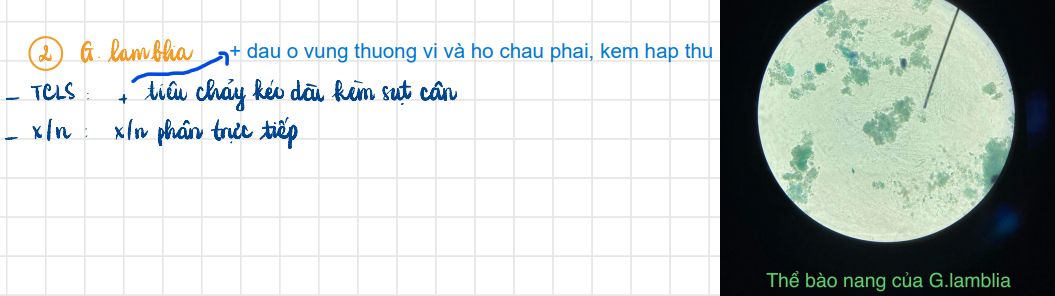 ② G. lamblia + dau o vung thuong vi và ho chau phai, kem hap thu
- TCLS : + tiêu chảy kéo dài kèm sụt cân
- x/n : x/n phân trực tiếp
Thể bào nang của G.lamblia